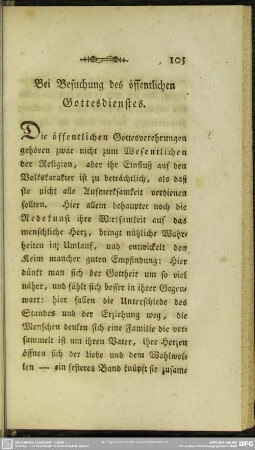 105
Bei Besuchung des öffentlichen
Gottesdienstes.
Die öffentlichen Gottesverehrungen
gehören zwar nicht zum Wesentlichen
der Religion, aber ihr Einfluß auf den
Volkskarakter ist zu beträchtlich, als daß
sie nicht alle Aufmerksamkeit verdienen
sollten. Hier allein behauptet noch die
Redekunst ihre Wirksamkeit auf das
menschliche Herz, bringt nüzliche Wahr-
heiten in Umlauf, und entwikelt den
Keim mancher guten Empfindung: Hier
dünkt man sich der Gottheit um so viel
näher, und fühlt sich besser in ihrer Gegen-
wart: hier fallen die Unterschiede des
Standes und der Erziehung weg, die
Menschen denken sich eine Familie die ver-
sammelt ist um ihren Vater, ihre Herzen
öffnen sich der Liebe und dem Wohlwol-
len — ein festeres Band knüpft sie zusam-
DFG